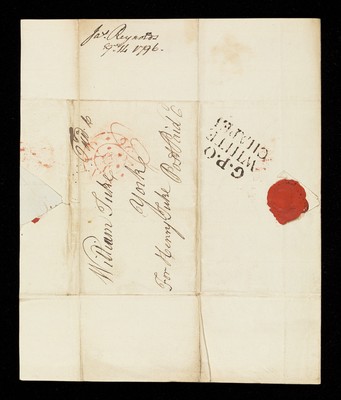 Jas. Reynolds
7. 14 1796.
William Tuke
York
For Henry Tuke Post Paid 6
Paid 6
G.P.O
WHITE
CHAPEL